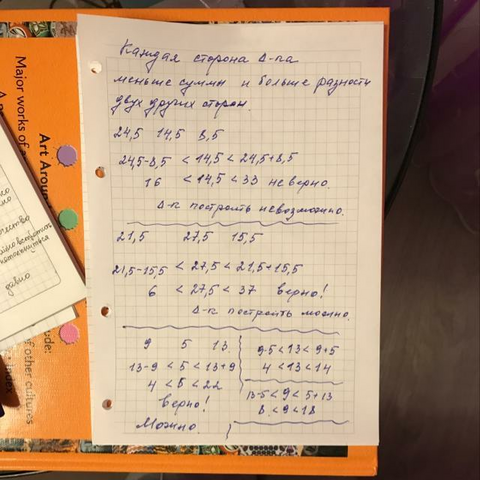 Каждая сторона Δ-ка
меньше суммы и больше разности
двух других сторон.
24,5 14,5 8,5
24,5-8,5 < 14,5 < 24,5+8,5
16 < 14,5 < 33 неверно.
Δ-к построить невозможно.
21,5 27,5 15,5
21,5-15,5 < 27,5 < 21,5+15,5
6 < 27,5 < 37 верно!
Δ-к построить можно.
9 5 13
13-9 < 5 < 13+9
4 < 5 < 22
верно!
Можно.
9-5 < 13 < 9+5
4 < 13 < 14
13-5 < 9 < 5+13
8 < 9 < 18
Major works of
Art Aroun
of other cultures
index
давно